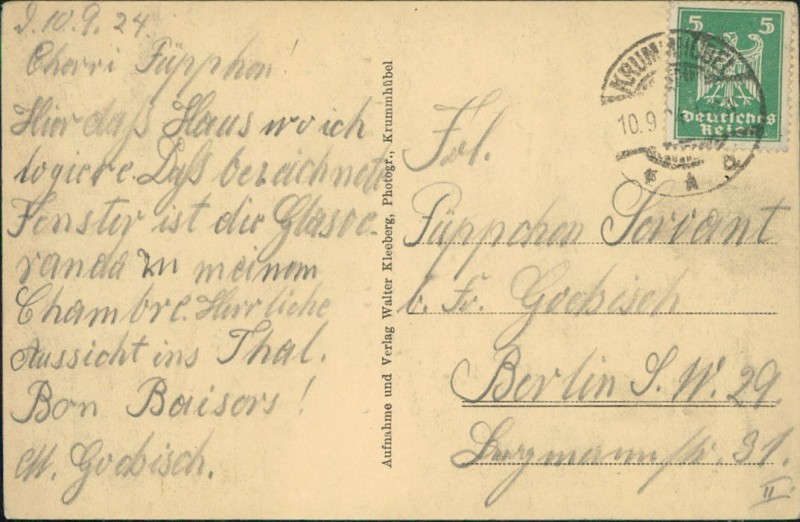 D. 10.9.24.
Cherri Püpphen!
Hier daß Haus wo ich
logiere. Daß bezeichnete
Fenster ist die Glasve-
randa zu meinem
Chambre. Herrliche
Aussicht ins Thal.
Bon Baisers!
M. Goebisch.
Aufnahme und Verlag Walter Kleeberg, Photogr., Krummhübel
5 5
deutsches
Reich
KRUMMHÜBEL
10.9.
Frl.
Püppchen Servant
b. Fr. Goebisch
Berlin S.W. 29.
Bergmannstr. 31.
II.